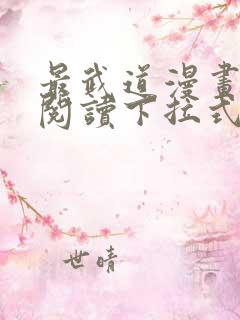 最武道漫畫
閱讀下拉式
世晴